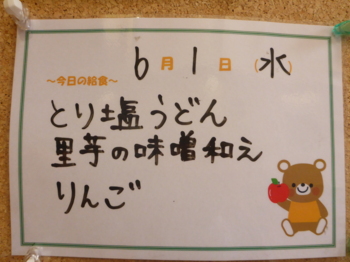 6月1日(水)
〜今日の給食〜
とり塩うどん
里芋の味噌和え
りんご